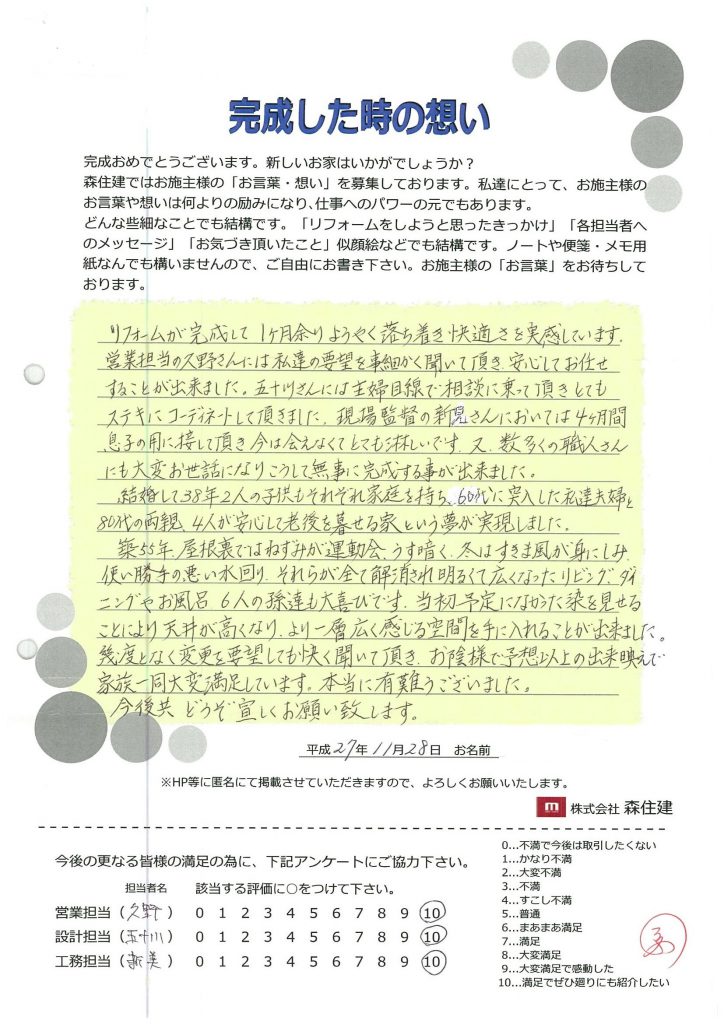 完成した時の想い
完成おめでとうございます。新しいお家はいかがでしょうか？
森住建ではお施主様の「お言葉・想い」を募集しております。私達にとって、お施主様の
お言葉や想いは何よりの励みになり、仕事へのパワーの元でもあります。
どんな些細なことでも結構です。「リフォームをしようと思ったきっかけ」「各担当者へ
のメッセージ」「お気づき頂いたこと」似顔絵などでも結構です。ノートや便箋・メモ用
紙なんでも構いませんので、ご自由にお書き下さい。お施主様の「お言葉」をお待ちして
おります。
リフォームが完成して 1ヶ月余り ようやく落ち着き 快適さを実感しています。
営業担当の久野さんには私達の要望を事細かく聞いて頂き 安心してお任せ
することが出来ました。五十川さんには主婦目線で相談に乗って頂き とても
ステキにコーディネートして頂きました。現場監督の新見さんにおいては4ヶ月間
息子の用に接して頂き 今は会えなくてとても淋しいです。又、数多くの職人さん
にも大変お世話になりこうして無事に完成する事が出来ました。
結婚して38年 2人の子供もそれぞれ家庭を持ち、60代に突入した私達夫婦と
80代の両親、4人が安心して老後を暮せる家という夢が実現しました。
築55年 屋根裏ではねずみが運動会 うす暗く、冬はすきま風が身にしみ
使い勝手の悪い水回り それらが全て解消され明るくて広くなったリビング、ダイ
ニングやお風呂 6人の孫達も大喜びです。当初予定になかった染を見せる
ことにより天井が高くなり、より一層広く感じる空間を手に入れることが出来ました。
幾度となく変更を要望しても快く聞いて頂き、お陰様で予想以上の出来映えで
家族一同大変満足しています。本当に有難うございました。
今後共 どうぞ宜しくお願い致します。
平成 27年 11月 28日 お名前
※HP等に匿名にて掲載させていただきますので、よろしくお願いいたします。
m 株式会社 森住建
今後の更なる皆様の満足の為に、下記アンケートにご協力下さい。
担当者名 該当する評価に○をつけて下さい。
営業担当（久野） 0 1 2 3 4 5 6 7 8 9 10
設計担当（五十川） 0 1 2 3 4 5 6 7 8 9 10
工務担当（新美） 0 1 2 3 4 5 6 7 8 9 10
0…不満で今後は取引したくない
1…かなり不満
2…大変不満
3…不満
4…すこし不満
5…普通
6…まあまあ満足
7…満足
8…大変満足
9…大変満足で感動した
10…満足でぜひ廻りにも紹介したい